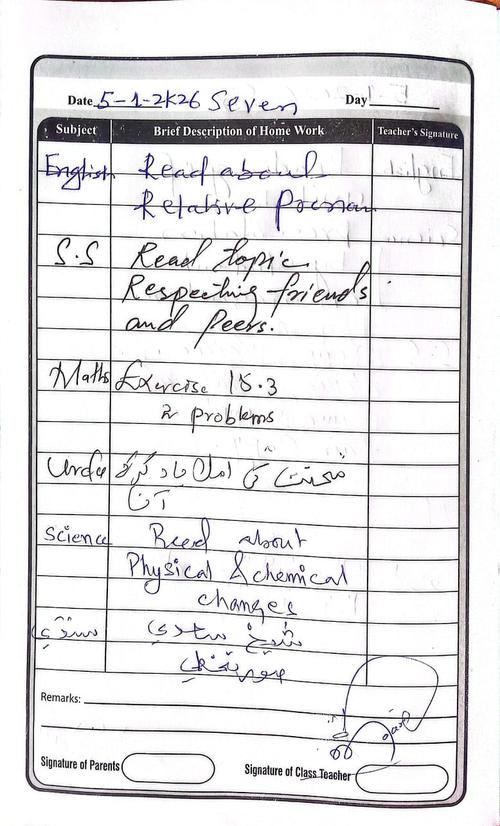 Date 5-1-2K26 Seven Day
Subject Brief Description of Home Work Teacher's Signature
English Read about
Relative Pronoun
S.S Read topic
Respecting friends
and Peers.
Maths Exercise 15.3
2 problems
Urdu محنت کی املا یاد کرکے
آنا
Science Read about
Physical & chemical
changes
سنڌي شيخ سعدي
صورتخطي
Remarks:
Signature of Parents Signature of Class Teacher